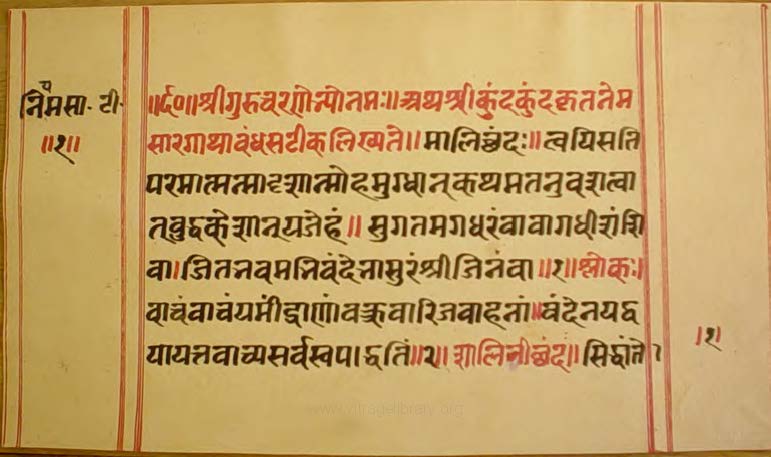 नियमसा. टी.
॥१॥
॥र्द०॥श्रीगुरुचरणेभ्योनमः॥अथश्रीकुंदकुंदकृततेम
सारगाथाबंधसटीकलिख्यते॥मालिछंदः॥त्वयिसति
परमात्मन्मादृशान्मोहमुग्धान्कथमतनुवशत्वा
न्बुद्धकेशान्यजेहं॥सुगतमगधरंवावागधीशंशि
वा।जितनवमनिवंदेनासुरंश्रीजिनंवा॥१॥श्लोकः।
वाचंवाचंयमींद्राणांवक्रवारिजवाहनां॥वंदेनयद्व
यायत्तवाच्यसर्वस्वपाद्धतिं॥२॥शालिनीछंद॥सिद्धांते
।१।
www.vitragelibrary.org